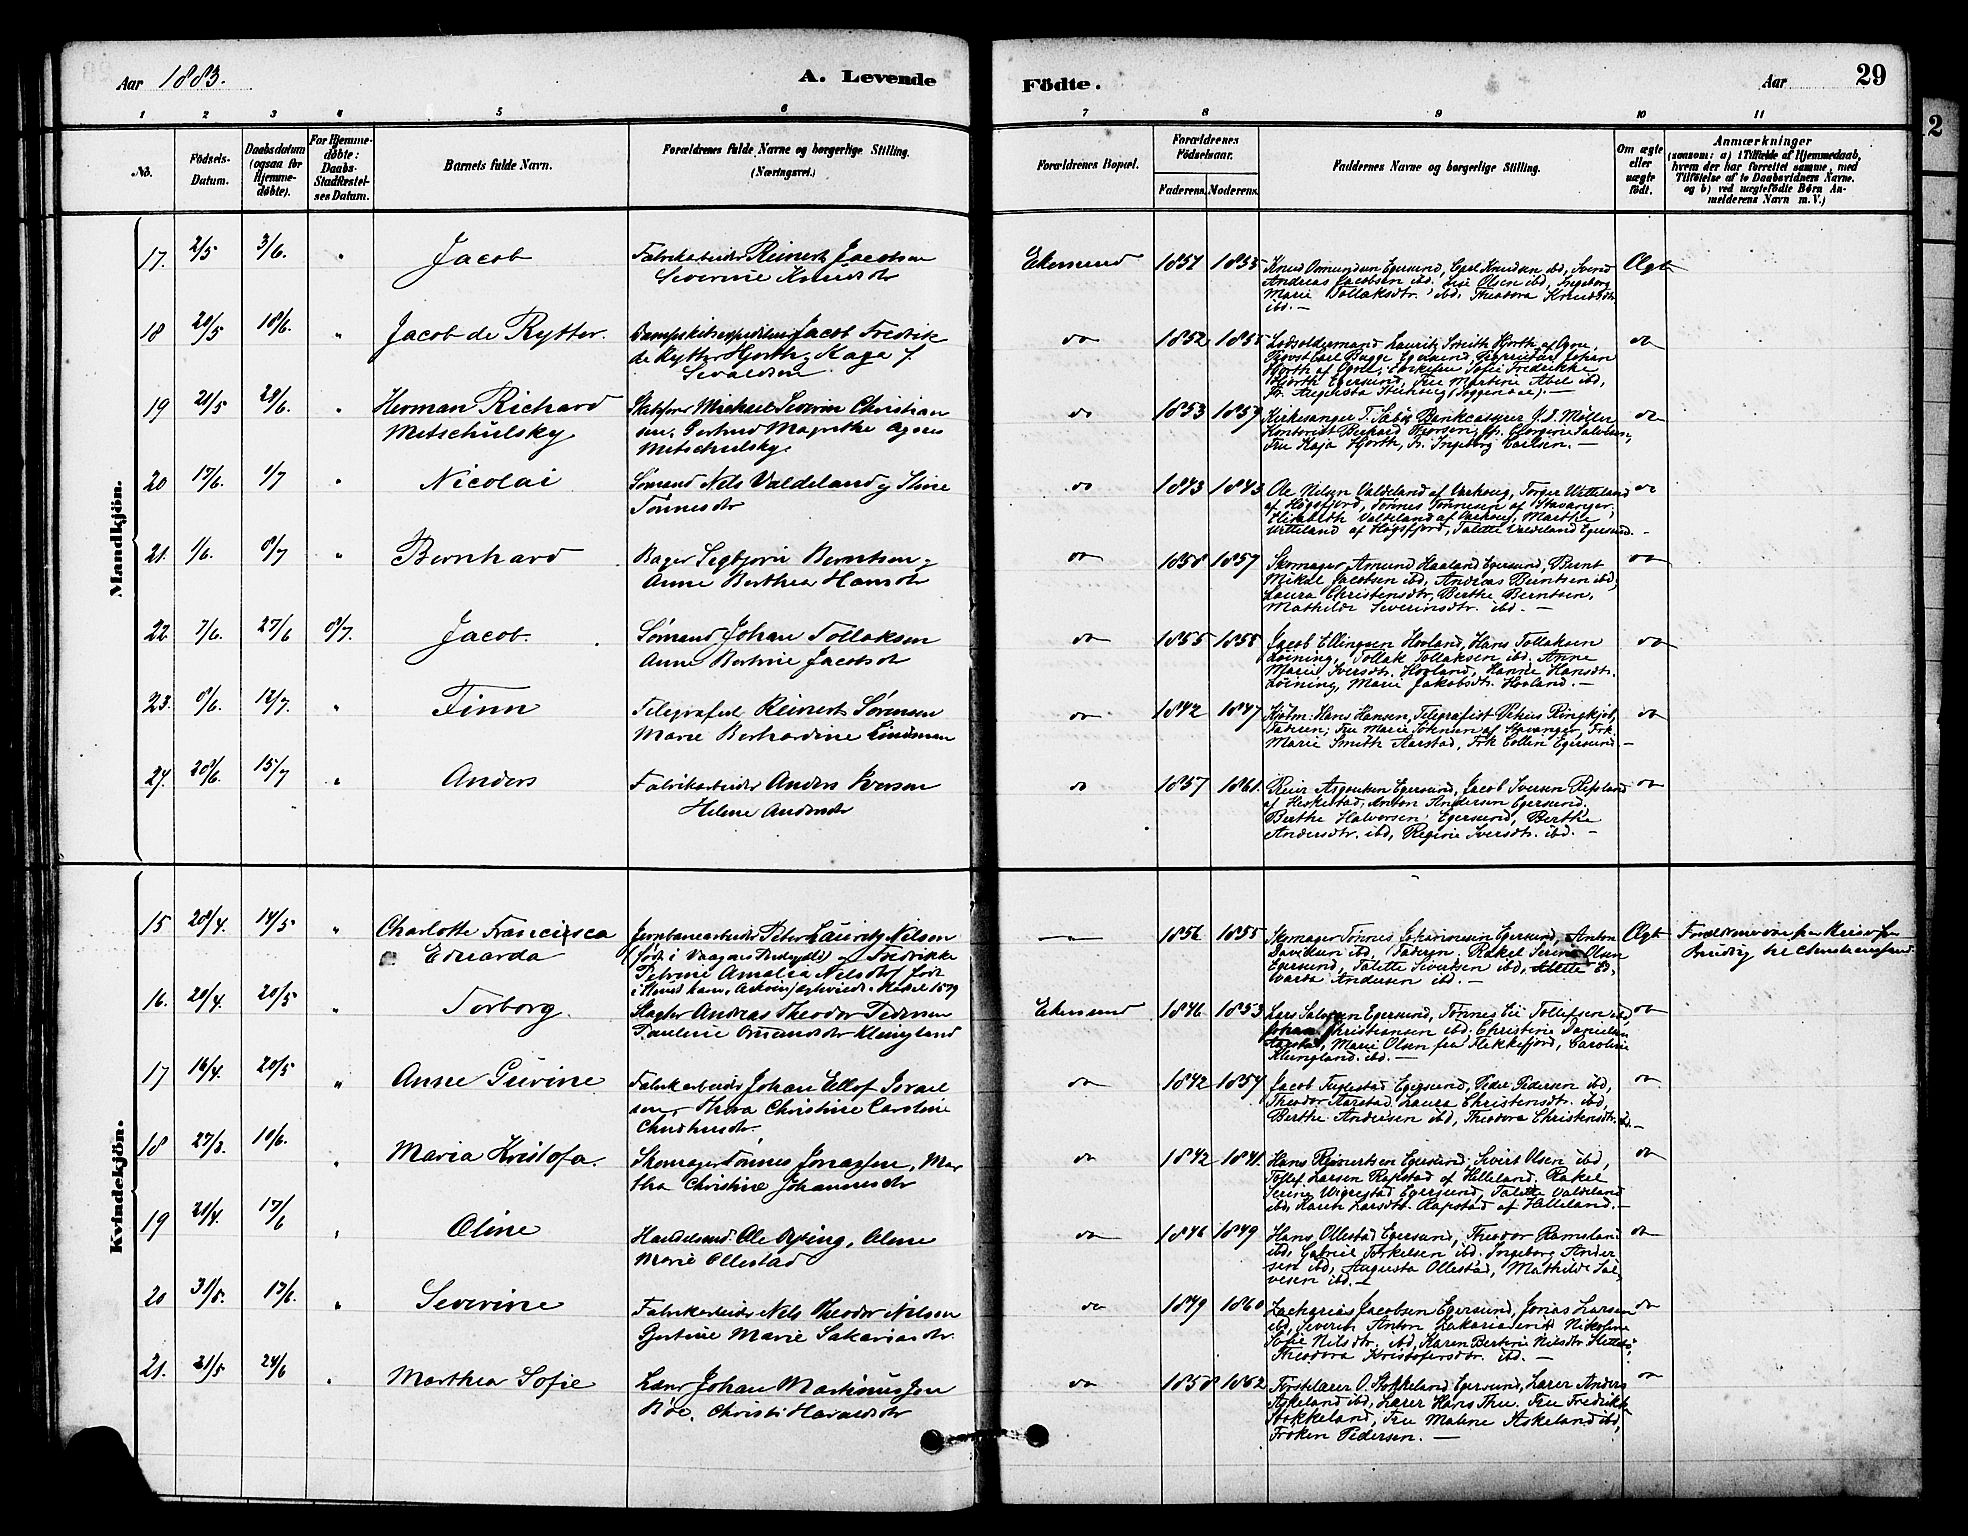 Aar 1883.
A. Levende
Födte.
Aar
29
1 2 3 4 5 6 7 8 9 10 11
No.
Födsels-
Datum.
Daabsdatum
(ogsaa for
Hjemme-
døbte).
For Hjemme-
døbte:
Daabs-
Stadfæstel-
ses Datum.
Barnets fulde Navn.
Forældrenes fulde Navne og borgerlige Stilling.
(Næringsvei.)
Forældrenes Bopæl.
Forældrenes
Fødselsaar.
Faderens. Moderens.
Faddernes Navne og borgerlige Stilling.
Om ægte
eller
uægte
født.
Anmærkninger
(saasom: a) i Tilfælde af Hjemmedaab,
hvem der har forrettet samme, med
Tilføielse af to Daabsvidners Navne.
og b) ved uægtefødte Börn An-
melderens Navn m. V.)
Mandkjön.
17. 2/5 3/6. " Jacob
Fabrikarbeider Reinert Jacobsen
Severine Knudsdtr
Ekersund 1851 1855
Knud Omundsen Egersund, Carl Knudsen ibd, Svend
Andreas Jacobsen ibd. Lise Olsen ibd, Ingeborg
Marie Tollaksdtr. ibd, Theodora Knudsdtr
ibd. —
Ægt
18 20/5 10/6. " Jacob de Rytter.
Dampskibsexpeditør Jacob Fredrik
de Rytter Hjorth, Kaja f.
Sevaldsen
do 1852 1855
Lodsoldermand Lauritz Smith Hjorth af Ogne,
Provst Carl Bugge Egersund, Proprietær Johan
Hjorth af Ogne, Enkefru Sofie Fredrikke
Hjorth Egersund, Fru Martine Abel ibd,
Fr. Augusta Stenberg (Soggendal). —
do
19 21/5 24/6. " Herman Richard
Mitschulsky
Skibsfører Michael Severin Christian
sen, Gertrud Magrethe Agnes
Mitschulsky.
do 1853 1857
Kirkesanger T. Sæbø, Bankcasserer J. S. Møller,
Kontorist Berhard Thorsen, Fr. Georgine Salvesen,
Fru Kaja Hjorth, Fr. Ingeborg Carlsen. —
do
20 17/6. 1/7 " Nicolai
Sømand Nils Valdeland og Stine
Tönnesdtr
do 1843 1843
Ole Nilsen Valdeland af Varhoug, Torger Vetteland
af Högsfjord, Tönnes Tönnesen af Stavanger.
Elisabeth Valdeland af Varhoug, Marthe
Vetteland af Högsfjord, Talette Valdeland Egersund. —
do
21. 1/6. 8/7 " Bernhard
Bager Segbjørn Berntsen,
Anne Berthea Hansdtr
do 1858 1857
Skomager Amund Haaland Egersund, Bernt
Mikal Jacobsen ibd, Andreas Berntsen ibd,
Laura Christensdtr, Berthe Berntsen,
Mathilde Severinsdtr. ibd. —
do
22. 7/6. 27/6 8/7. Jacob.
Sømand Johan Tollaksen
Anne Bertine Jacobsdtr
do 1855 1858
Jacob Ellingsen Hovland, Hans Tollaksen
Løining, Tollak Tollaksen ibd. Anne
Marie Iversdtr. Hovland, Hanne Hansdtr.
Løining, Marie Jakobsdtr. Hovland. —
do
23. 8/6. 12/7. " Finn
Telegrafist Reinert Sørensen
Marie Berhardine Lindman
do 1842 1847
Kjöbm. Hans Hansen, Telegrafist Ringkjøb,
Faderen; Fru Marie af Stavanger, Frk.
Marie Smith Aarstad, Frk Collin Egersund. —
do
24. 20/6. 15/7 " Anders
Fabrikarbeider Anders Iversen
Helene Andersdtr
do 1857 1861.
Reier Asgoutsen Egersund, Jacob Iversen Refsland
af Heskestad, Anton Andersen Egersund,
Berthe Halvorsen Egersund, Berthe
Andersdtr. ibd, Regine Iversdtr. ibd. —
do
Kvindekjön.
15 28/4. 14/5 " Charlotte Francisca
Eduarda
Jernbanearbeider Peter Lauritz Nilsen
Petrine Amalia Nilsdtr, født
— 1856 1855
Skomager Tønnes Johannesen Egersund, Anton
Daviksen ibd, Faderen. Rakel Serine Olsen
Egersund, Talette Sivertsen ibd, Ed-
varda Andersen ibd. —
Ægt
16. 20/4. 20/5 " Torborg.
Slagter Andreas Theodor Pedersen
Pauline Omundsdtr Klungland
Ekersund 1846 1853
Lars Salvesen Egersund, Tønnes Eie Tollefsen ibd,
Johan Christiansen ibd. Christine Danielsen
Aarstad, Marie Olsen fra Flekkefjord, Caroline
Klungland. ibd. —
do
17 16/4. 20/5 " Anne Gurine
Fabrikarbeider Johan Ellof Israel
sen, Thora Christine Caroline
do 1842 1857
Jacob Fuglestad Egersund, Peder Pedersen ibd,
Theodor Aarstad, Laura Christensdtr. ibd,
Berthe Andersen ibd, Theodora Christensdtr. ibd. —
do
18 27/3. 10/6. " Maria Kristofa.
Skomager Tönnes Jonassen, Mar
tha Christine Johannesdtr
do 1842 1841.
Hans Reinertsen Egersund, Sivert Olsen ibd,
Tollef Larsen Rapstad af Helleland. Rakel
Serine Vigrestad Egersund, Talette Valdeland
ibd, Karen Larsdtr. Rapstad af Helleland. —
do
19 20/4. 17/6 " Oline
Handelsmd. Ole Byking, Oline
Marie Ollestad
do 1846 1849
Hans Ollestad Egersund, Theodor Ramsland
ibd, Gabriel Torkelsen ibd. Ingeborg Ander
sen ibd, Augusta Ollestad, Mathilde Sal-
vesen ibd. —
do
20 31/5. 17/6. " Severine
Fabrikarbeider Nils Theodor Nilsen
Gjertine Marie Sakariasdtr.
do 1849 1860
Zacharias Jacobsen Egersund, Jonas Larsen
ibd, Severin Anton Zakariasen ibd Nikoline
Sofie Nilsdtr. ibd, Karen Bertine Nilsdtr
Theodora Kristofersdtr. ibd. —
do
21. 31/5 24/6 " Marthea Sofie
Lærer Johan Martinius Jen
Böe, Christi Haraldsdtr
do 1858 1862
Førstelærer O. Stokkeland Egersund, Lærer Anders
Askeland ibd, Lærer Hans Thu. Fru Fredrikke
Stokkeland, Fru Maline Askeland ibd,
Frøken Pedersen. —
do
2